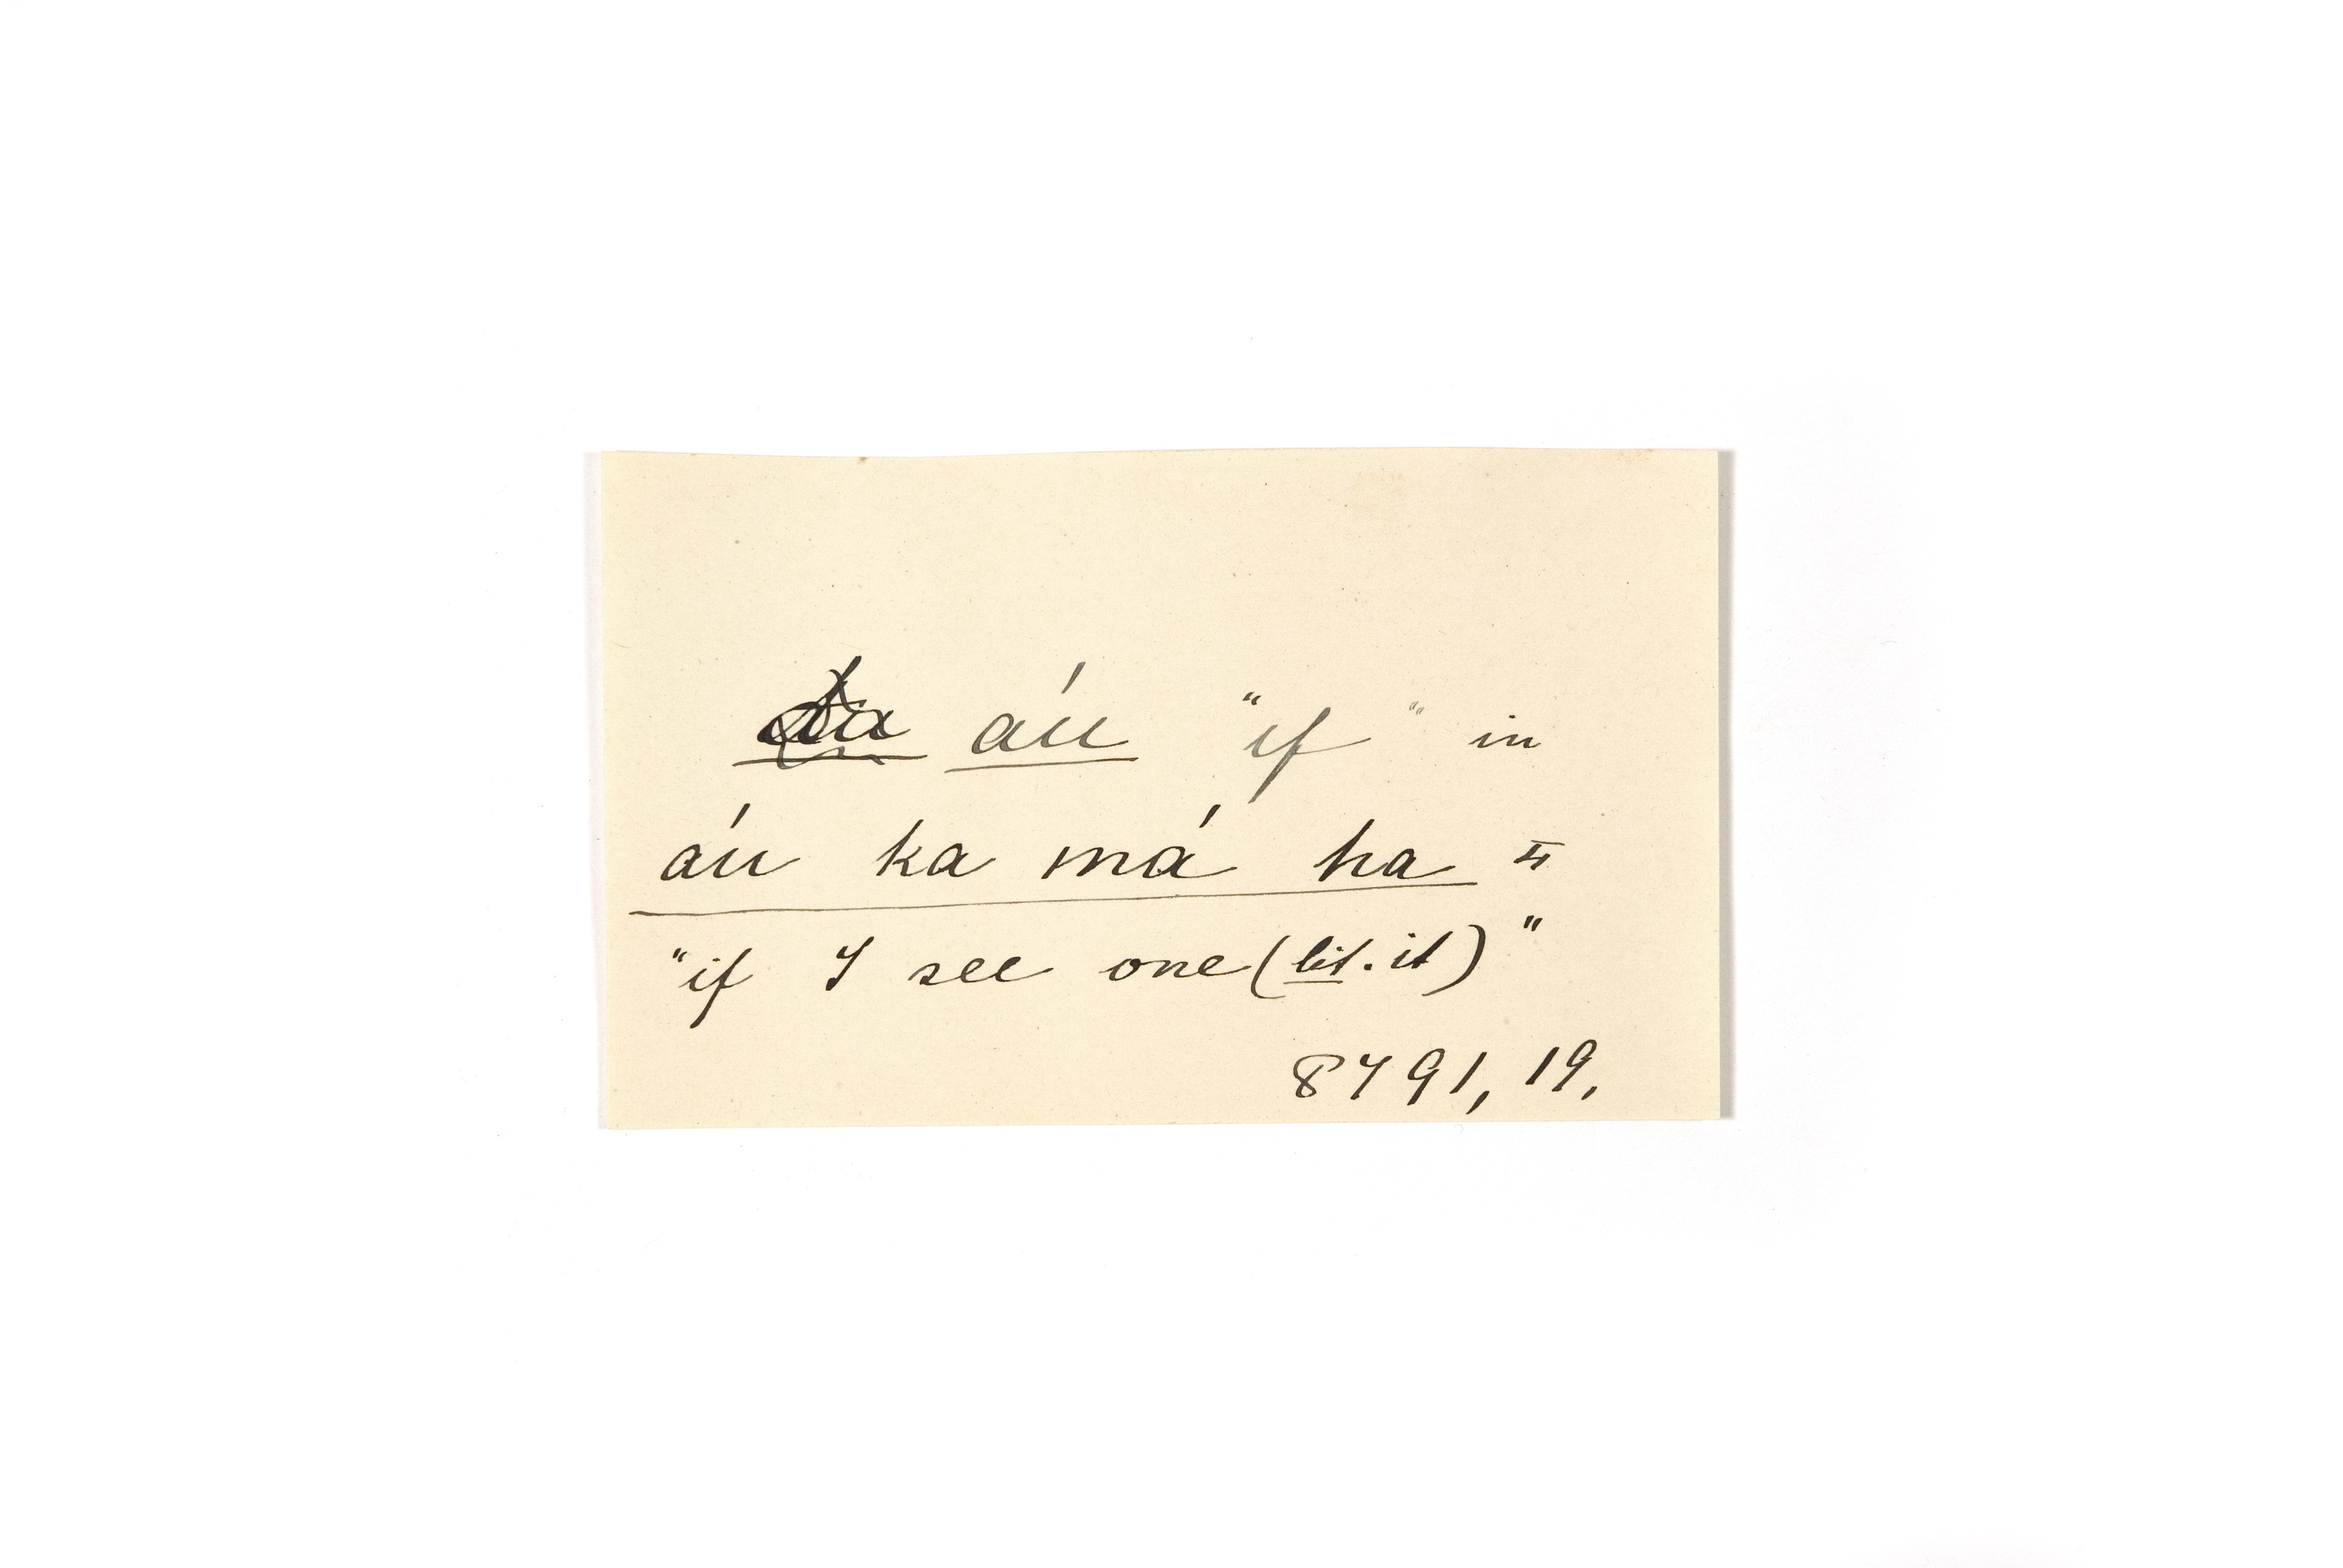 áu "if" in
áu ka má ha =
"if I see one (lit. it)"
8791, 19.